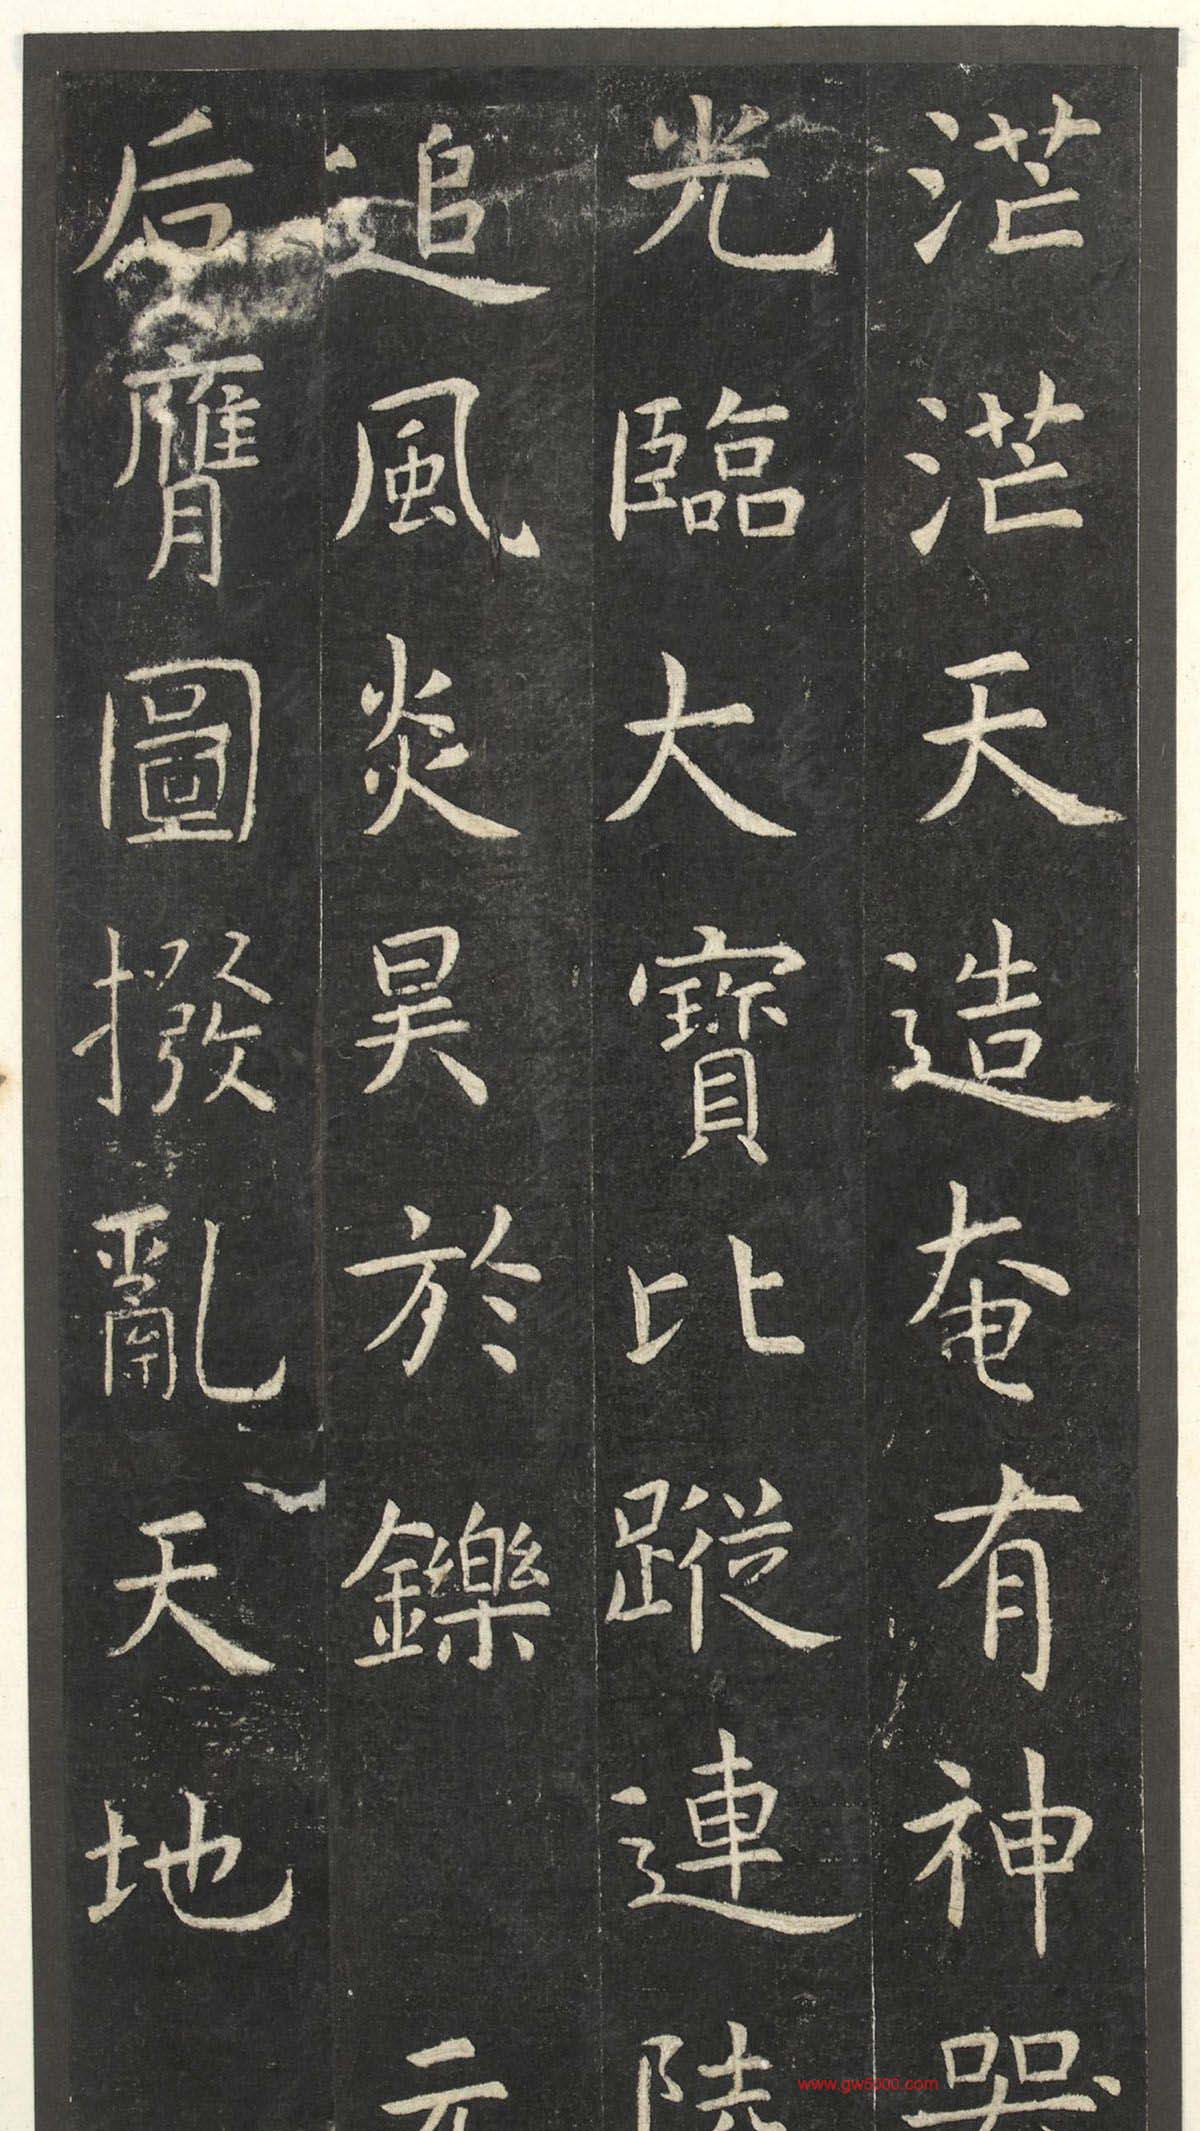 茫茫天造奄有神器
光臨大寶比蹤連陸
追風炎昊於鑠元
后膺圖撥亂天地
www.gw5000.com